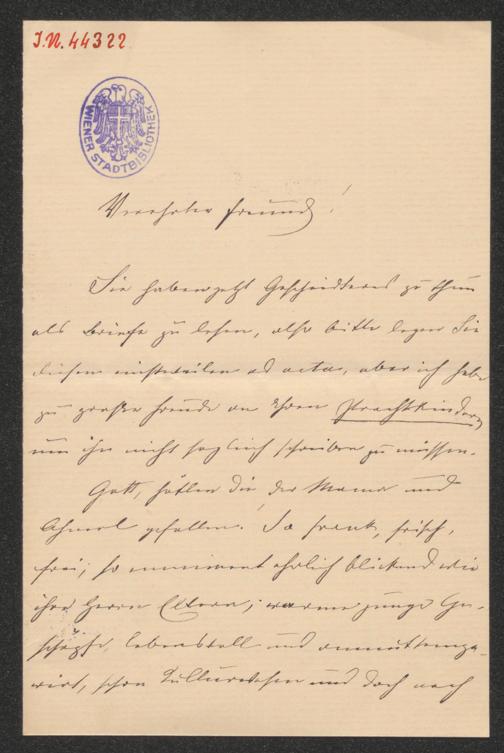 J.N. 44322
WIENER STADTBIBLIOTHEK
Verehrter Freund!
Sie haben jetzt Gescheidteres zu thun
als Briefe zu lesen, also bitte legen Sie
diesen einstweilen ad acta, aber ich habe
zu große Freude an Ihren Prachtkindern
um ihn nicht sogleich schreiben zu müssen.
Gott, hätten die der Mama und
gefallen. So frank, frisch,
frei; so eminent ehrlich blickend wie
ihre Herrn Eltern; warme junge Ge-
schöpfe, lebensvoll und
schon Culturwesen und doch noch